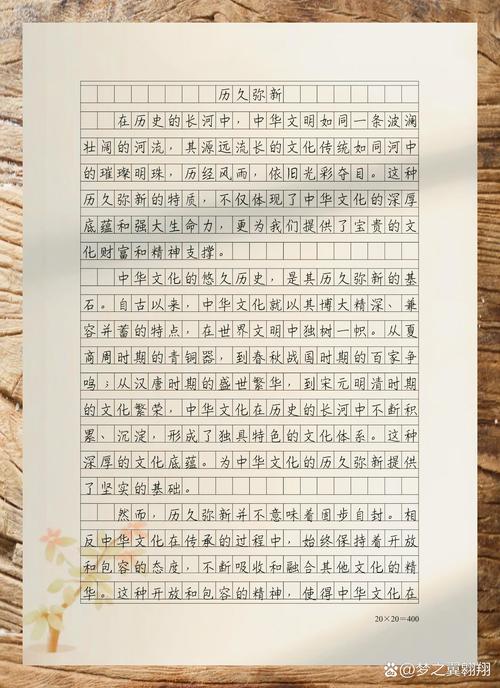 历久弥新
在历史的长河中，中华文明如同一条波澜
壮阔的河流，其源远流长的文化传统如同河中
的璀璨明珠，历经风雨，依旧光彩夺目。这种
历久弥新的特质，不仅体现了中华文化的深厚
底蕴和强大生命力，更为我们提供了宝贵的文
化财富和精神支撑。
中华文化的悠久历史，是其历久弥新的基
石。自古以来，中华文化就以其博大精深、兼
容并蓄的特点，在世界文明中独树一帜。从夏
商周时期的青铜器，到春秋战国时期的百家争
鸣；从汉唐时期的盛世繁华，到宋元明清时期
的文化繁荣，中华文化在历史的长河中不断积
累、沉淀，形成了独具特色的文化体系。这种
深厚的文化底蕴。为中华文化的历久弥新提供
了坚实的基础。
然而，历久弥新并不意味着固步自封。相
反中华文化在传承的过程中，始终保持着开放
和包容的态度，不断吸收和融合其他文化的精
华。这种开放和包容的精神，使得中华文化在
20×20=400
百家号/梦之翼翱翔